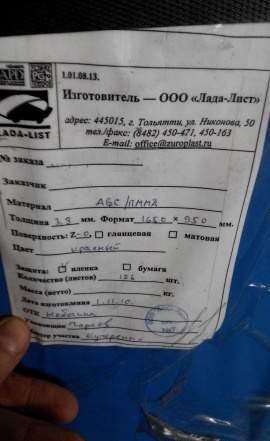 1.01.08.13.
Изготовитель — ООО «Лада-Лист»
LADA-LIST
адрес: 445015, г. Тольятти, ул. Никонова, 50
тел./факс: (8482) 450-471, 450-163
E-mail: office@zuroplast.ru
№ заказа
Заказчик
Материал АБС/ПММА
Толщина 3.8 мм. Формат 1650 × 950 мм.
Поверхность: глянцевая матовая
Цвет красный
Защита: пленка бумага
Количество (листов) 126 шт.
Масса (нетто) кг.
Дата изготовления 1.11.10.
ОТК
участка